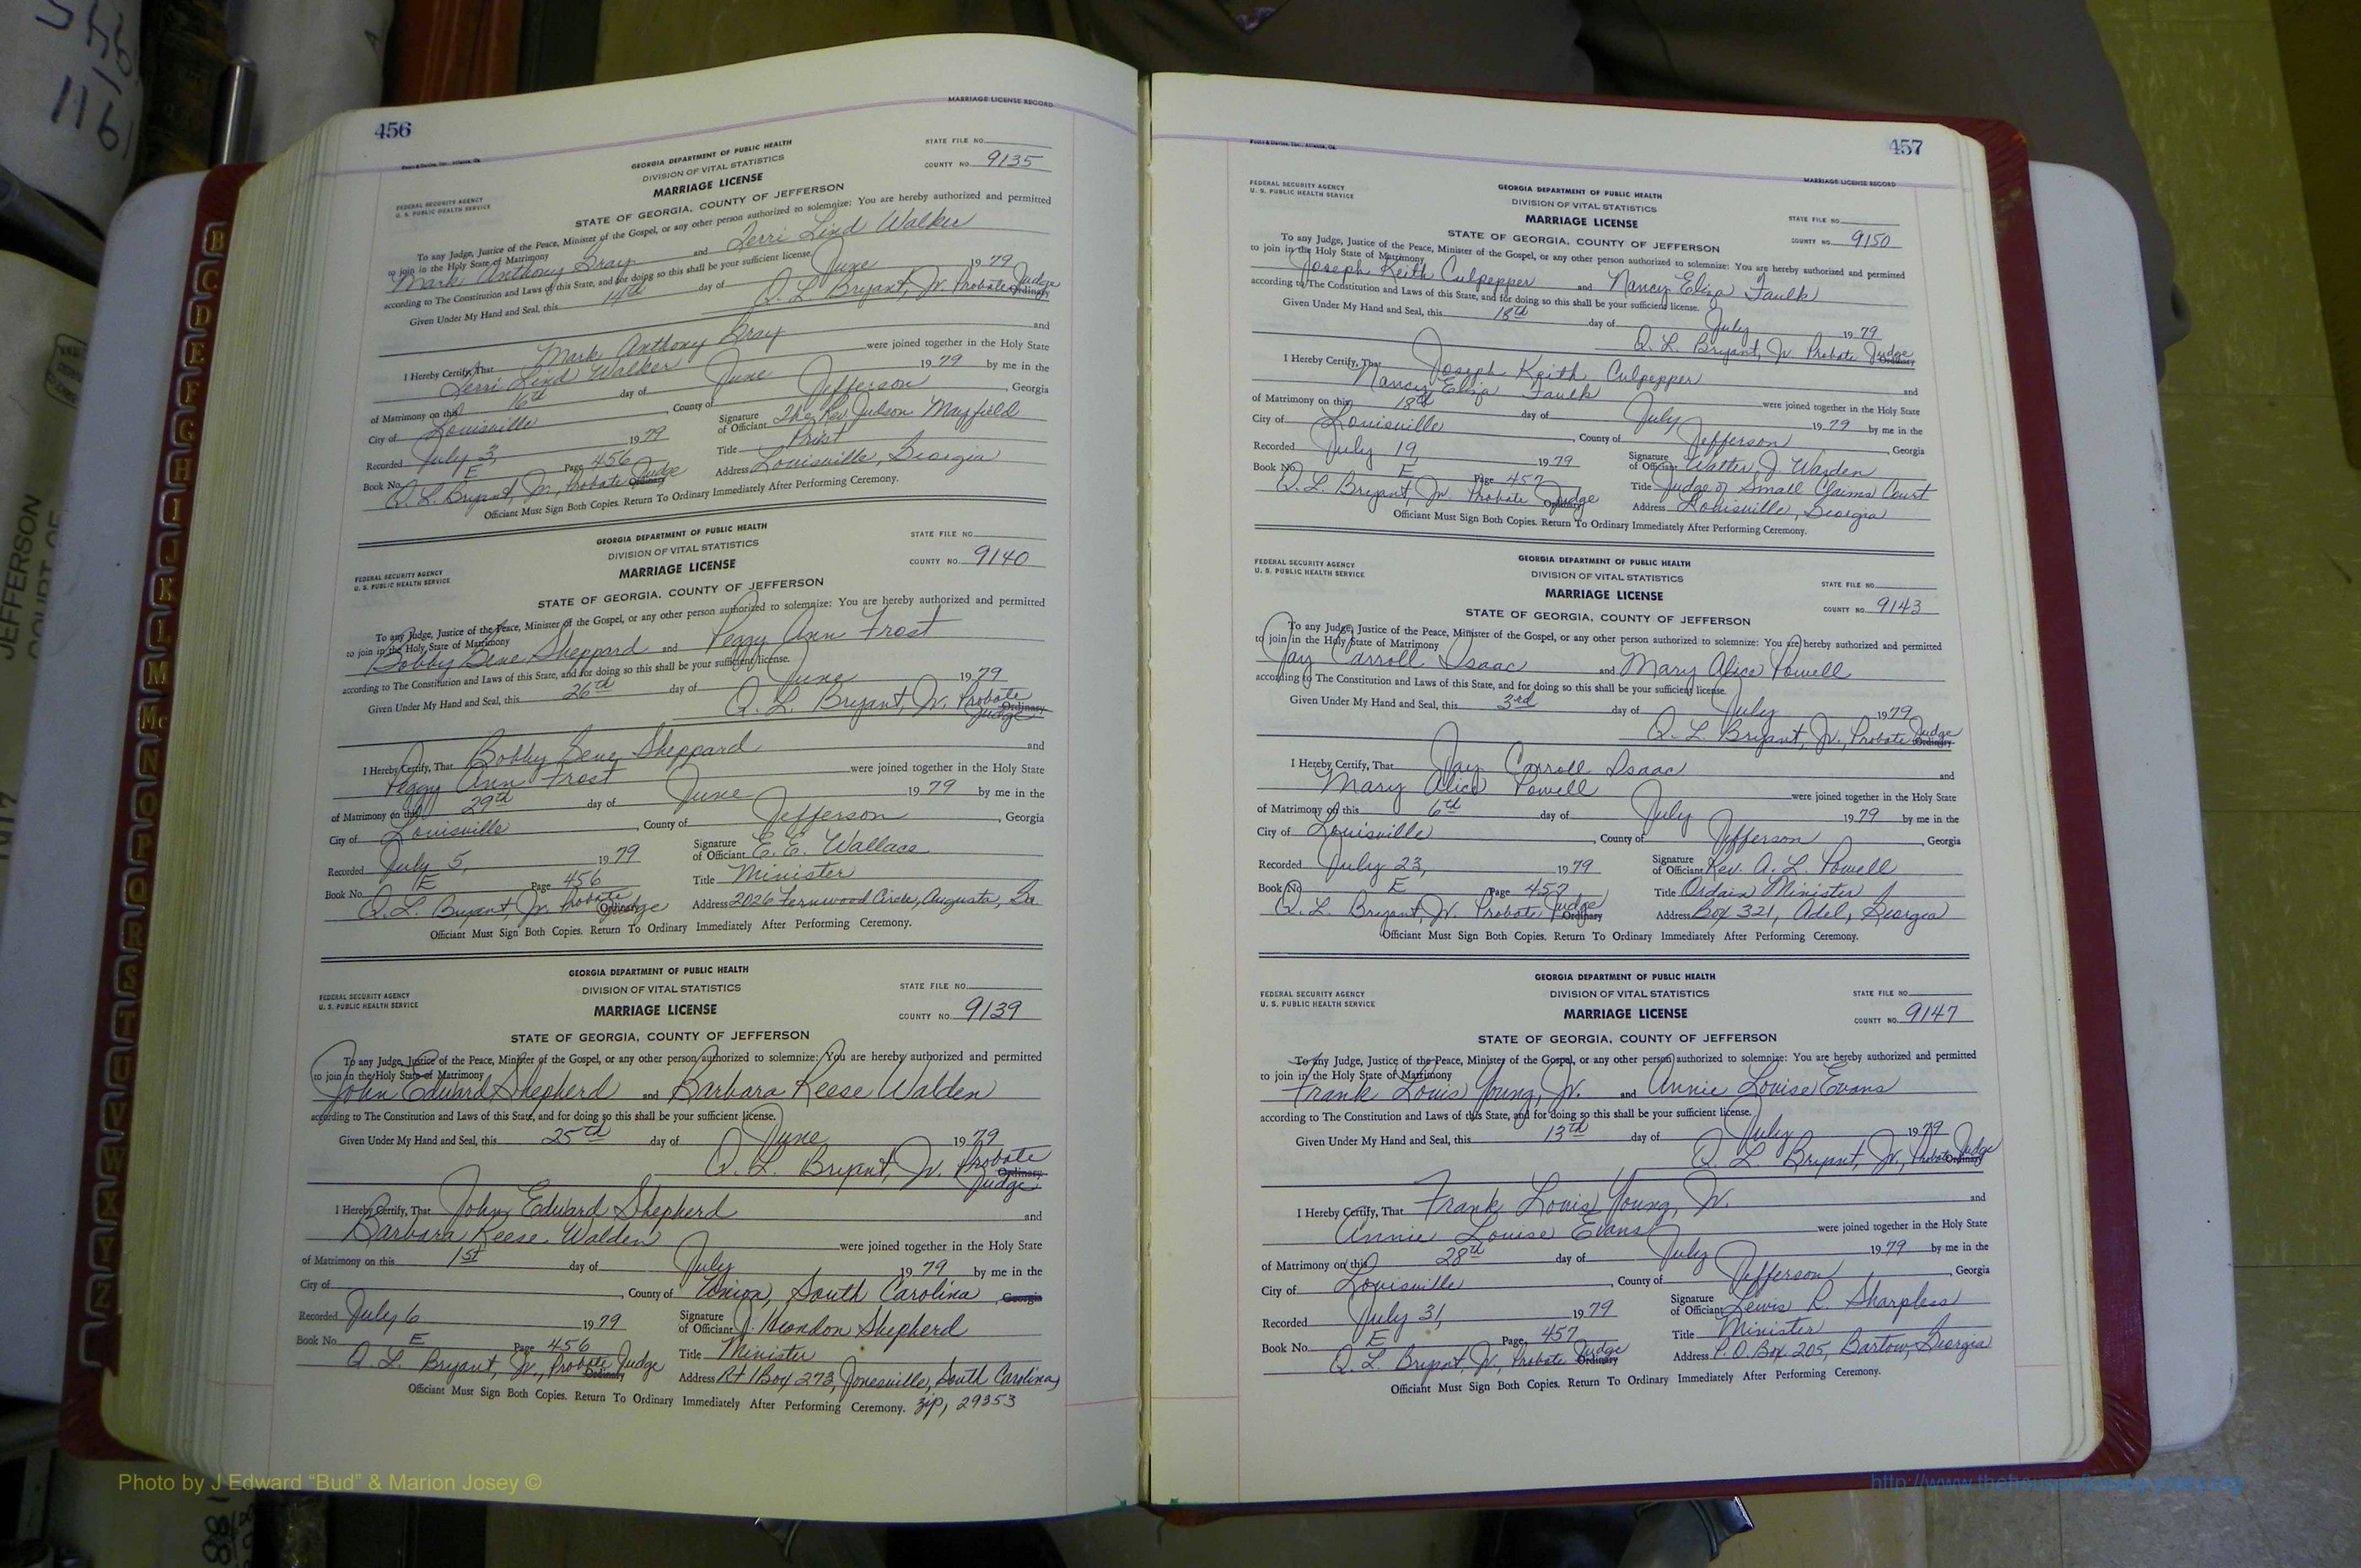 456
MARRIAGE LICENSE RECORD
GEORGIA DEPARTMENT OF PUBLIC HEALTH
DIVISION OF VITAL STATISTICS
MARRIAGE LICENSE
STATE FILE NO.
COUNTY NO. 9135
FEDERAL SECURITY AGENCY
U. S. PUBLIC HEALTH SERVICE
STATE OF GEORGIA, COUNTY OF JEFFERSON
To any Judge, Justice of the Peace, Minister of the Gospel, or any other person authorized to solemnize: You are hereby authorized and permitted
to join in the Holy State of Matrimony
Mark Anthony Gray and Terri Lind Walker
according to The Constitution and Laws of this State, and for doing so this shall be your sufficient license.
Given Under My Hand and Seal, this 14th day of June 1979
Q. L. Bryant, Jr. Probate Judge Ordinary
I Hereby Certify, That Mark Anthony Gray and
Terri Lind Walker were joined together in the Holy State
of Matrimony on this 16th day of June 1979 by me in the
City of Louisville, County of Jefferson, Georgia
Recorded July 3, 1979 Signature of Officiant The Rev. Judson Mayfield
Book No. E Page 456 Title Priest
Q. L. Bryant, Jr., Probate Judge Ordinary Address Louisville, Georgia
Officiant Must Sign Both Copies. Return To Ordinary Immediately After Performing Ceremony.
GEORGIA DEPARTMENT OF PUBLIC HEALTH
DIVISION OF VITAL STATISTICS
MARRIAGE LICENSE
STATE FILE NO.
COUNTY NO. 9140
FEDERAL SECURITY AGENCY
U. S. PUBLIC HEALTH SERVICE
STATE OF GEORGIA, COUNTY OF JEFFERSON
To any Judge, Justice of the Peace, Minister of the Gospel, or any other person authorized to solemnize: You are hereby authorized and permitted
to join in the Holy State of Matrimony
Bobby Gene Sheppard and Peggy Ann Frost
according to The Constitution and Laws of this State, and for doing so this shall be your sufficient license.
Given Under My Hand and Seal, this 26th day of June 1979
Q. L. Bryant, Jr. Probate Ordinary Judge
I Hereby Certify, That Bobby Gene Sheppard and
Peggy Ann Frost were joined together in the Holy State
of Matrimony on this 29th day of June 1979 by me in the
City of Louisville, County of Jefferson, Georgia
Recorded July 5, 1979 Signature of Officiant E. E. Wallace
Book No. E Page 456 Title Minister
Q. L. Bryant, Jr. Probate Ordinary Judge Address 2026 Fernwood Circle, Augusta, Ga.
Officiant Must Sign Both Copies. Return To Ordinary Immediately After Performing Ceremony.
GEORGIA DEPARTMENT OF PUBLIC HEALTH
DIVISION OF VITAL STATISTICS
MARRIAGE LICENSE
STATE FILE NO.
COUNTY NO. 9139
FEDERAL SECURITY AGENCY
U. S. PUBLIC HEALTH SERVICE
STATE OF GEORGIA, COUNTY OF JEFFERSON
To any Judge, Justice of the Peace, Minister of the Gospel, or any other person authorized to solemnize: You are hereby authorized and permitted
to join in the Holy State of Matrimony
John Edward Shepherd and Barbara Reese Walden
according to The Constitution and Laws of this State, and for doing so this shall be your sufficient license.
Given Under My Hand and Seal, this 25th day of June 1979
Q. L. Bryant, Jr. Probate Ordinary Judge
I Hereby Certify, That John Edward Shepherd and
Barbara Reese Walden were joined together in the Holy State
of Matrimony on this 1st day of July 1979 by me in the
City of , County of Union, South Carolina, Georgia
Recorded July 6 1979 Signature of Officiant J. Herndon Shepherd
Book No. E Page 456 Title Minister
Q. L. Bryant, Jr., Probate Judge Ordinary Address Rt 1 Box 273, Jonesville, South Carolina,
Officiant Must Sign Both Copies. Return To Ordinary Immediately After Performing Ceremony. zip, 29353
457
MARRIAGE LICENSE RECORD
GEORGIA DEPARTMENT OF PUBLIC HEALTH
DIVISION OF VITAL STATISTICS
MARRIAGE LICENSE
STATE FILE NO.
COUNTY NO. 9150
FEDERAL SECURITY AGENCY
U. S. PUBLIC HEALTH SERVICE
STATE OF GEORGIA, COUNTY OF JEFFERSON
To any Judge, Justice of the Peace, Minister of the Gospel, or any other person authorized to solemnize: You are hereby authorized and permitted
to join in the Holy State of Matrimony
Joseph Keith Culpepper and Nancy Eliza Faulk
according to The Constitution and Laws of this State, and for doing so this shall be your sufficient license.
Given Under My Hand and Seal, this 18th day of July 1979
Q. L. Bryant, Jr. Probate Judge Ordinary
I Hereby Certify, That Joseph Keith Culpepper and
Nancy Eliza Faulk were joined together in the Holy State
of Matrimony on this 18th day of July 1979 by me in the
City of Louisville, County of Jefferson, Georgia
Recorded July 19, 1979 Signature of Officiant Walter J. Warden
Book No. E Page 457 Title Judge of Small Claims Court
Q. L. Bryant, Jr. Probate Judge Ordinary Address Louisville, Georgia
Officiant Must Sign Both Copies. Return To Ordinary Immediately After Performing Ceremony.
GEORGIA DEPARTMENT OF PUBLIC HEALTH
DIVISION OF VITAL STATISTICS
MARRIAGE LICENSE
STATE FILE NO.
COUNTY NO. 9143
FEDERAL SECURITY AGENCY
U. S. PUBLIC HEALTH SERVICE
STATE OF GEORGIA, COUNTY OF JEFFERSON
To any Judge, Justice of the Peace, Minister of the Gospel, or any other person authorized to solemnize: You are hereby authorized and permitted
to join in the Holy State of Matrimony
Jay Carroll Isaac and Mary Alice Powell
according to The Constitution and Laws of this State, and for doing so this shall be your sufficient license.
Given Under My Hand and Seal, this 3rd day of July 1979
Q. L. Bryant, Jr., Probate Judge Ordinary
I Hereby Certify, That Jay Carroll Isaac and
Mary Alice Powell were joined together in the Holy State
of Matrimony on this 6th day of July 1979 by me in the
City of Louisville, County of Jefferson, Georgia
Recorded July 23, 1979 Signature of Officiant Rev. A. L. Powell
Book No. E Page 457 Title Ordain Minister
Q. L. Bryant, Jr. Probate Judge Ordinary Address Box 321, Adel, Georgia
Officiant Must Sign Both Copies. Return To Ordinary Immediately After Performing Ceremony.
GEORGIA DEPARTMENT OF PUBLIC HEALTH
DIVISION OF VITAL STATISTICS
MARRIAGE LICENSE
STATE FILE NO.
COUNTY NO. 9147
FEDERAL SECURITY AGENCY
U. S. PUBLIC HEALTH SERVICE
STATE OF GEORGIA, COUNTY OF JEFFERSON
To any Judge, Justice of the Peace, Minister of the Gospel, or any other person authorized to solemnize: You are hereby authorized and permitted
to join in the Holy State of Matrimony
Frank Louis Young, Jr. and Annie Louise Evans
according to The Constitution and Laws of this State, and for doing so this shall be your sufficient license.
Given Under My Hand and Seal, this 13th day of July 1979
Q. L. Bryant, Jr., Probate Judge Ordinary
I Hereby Certify, That Frank Louis Young, Jr. and
Annie Louise Evans were joined together in the Holy State
of Matrimony on this 28th day of July 1979 by me in the
City of Louisville, County of Jefferson, Georgia
Recorded July 31, 1979 Signature of Officiant Lewis R. Sharpless
Book No. E Page 457 Title Minister
Q. L. Bryant, Jr., Probate Judge Ordinary Address P.O. Box 205, Bartow, Georgia
Officiant Must Sign Both Copies. Return To Ordinary Immediately After Performing Ceremony.
B
C
D
E
F
G
H
I
J
K
L
M
Mc
N
O
P
Q
R
S
T
U
V
W
X
Y
Z
JEFFERSON
COURT OF
Photo by J Edward “Bud” & Marion Josey ©